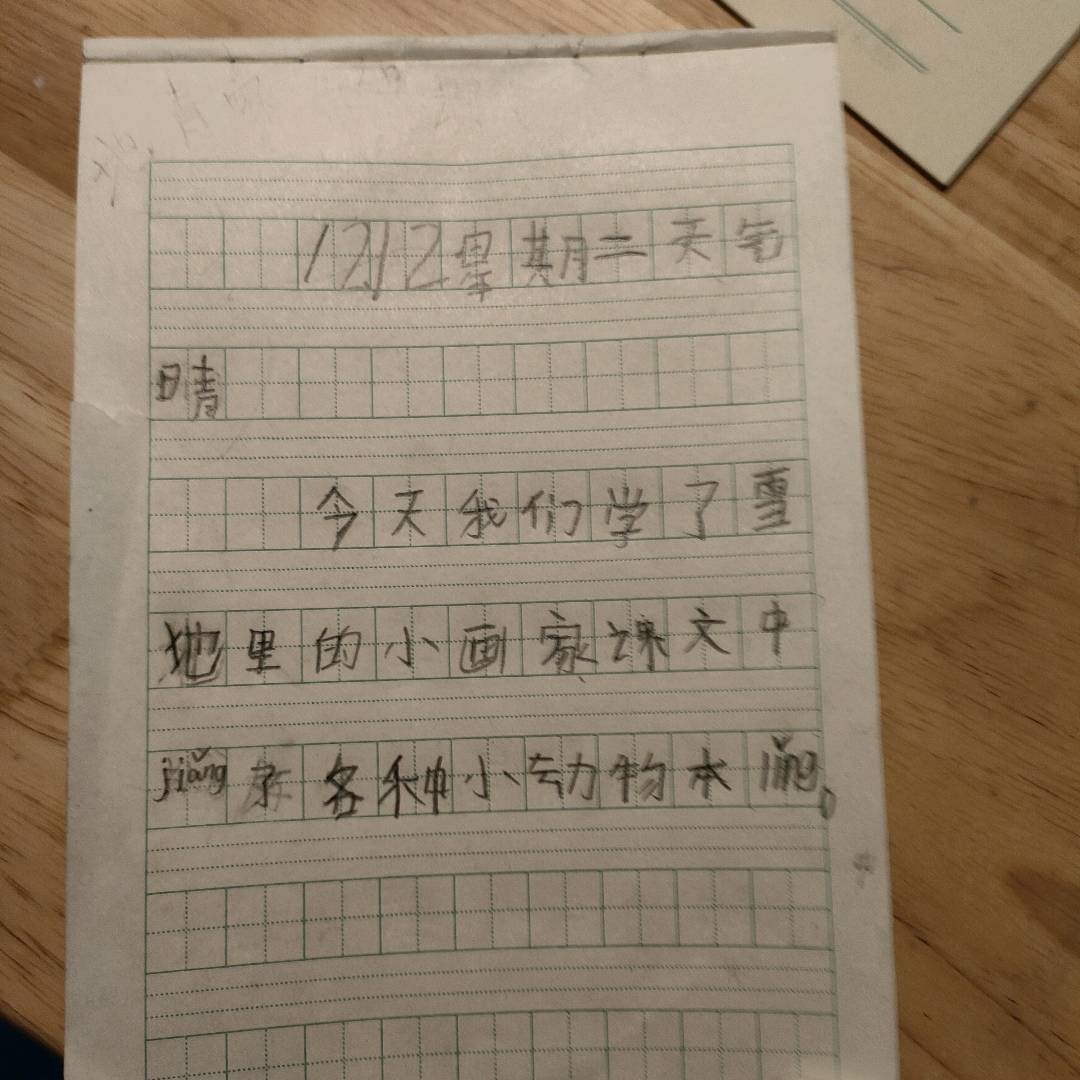 1212星期二天气
晴
今天我们学了雪
地里的小画家课文中
jiǎng了各种小动物本lǐng。